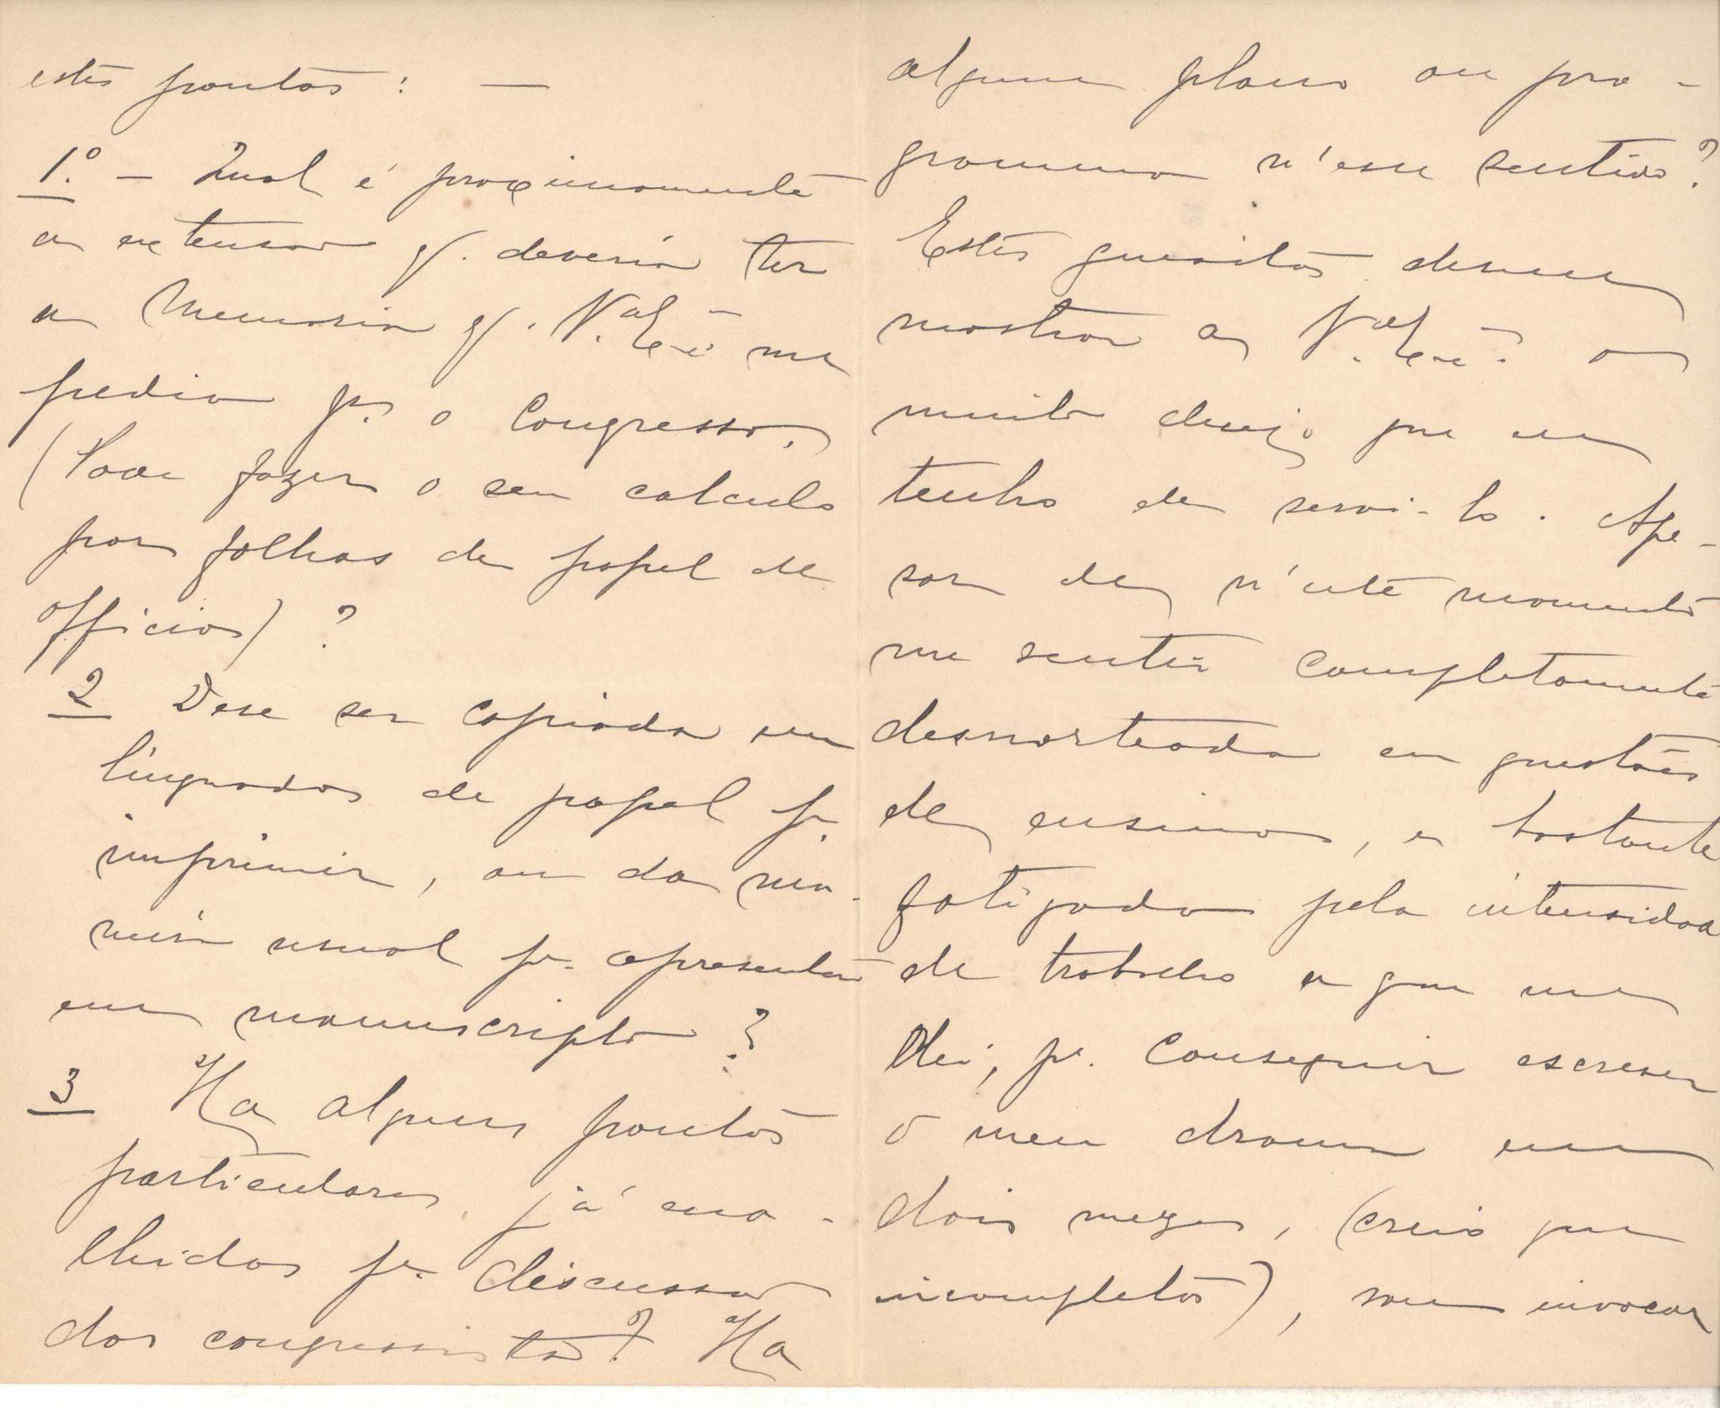 estes pontos: —
1.º — Qual é proximamente
a extensão q. deveria ter
a Memoria q. V.ª Ex.ª me
pedio p.ª o Congresso,
(Póde fazer o seu calculo
por folhas de papel de
officios) ?
2 Deve ser copiada em
linguados de papel p.ª
imprimir, ou da ma-
neira usual p.ª apresentar
em manuscripto ?
3 Ha alguns pontos
particulares, já esco-
lhidos p.ª discussão
dos congressistas? Ha
algum plano ou pro-
gramma n'esse sentido?
Estes quesitos devem
mostrar a V.ª Ex.ª o
muito desejo que eu
tenho de servi-lo. Ape-
sar de n'este momento
me sentir completamente
desnorteada em questões
de ensino, e bastante
fatigada pela intensidade
de trabalho a que me
dei, p.ª conseguir escrever
o meu drama em
dois mezes, (creio que
incompletos), vou invocar